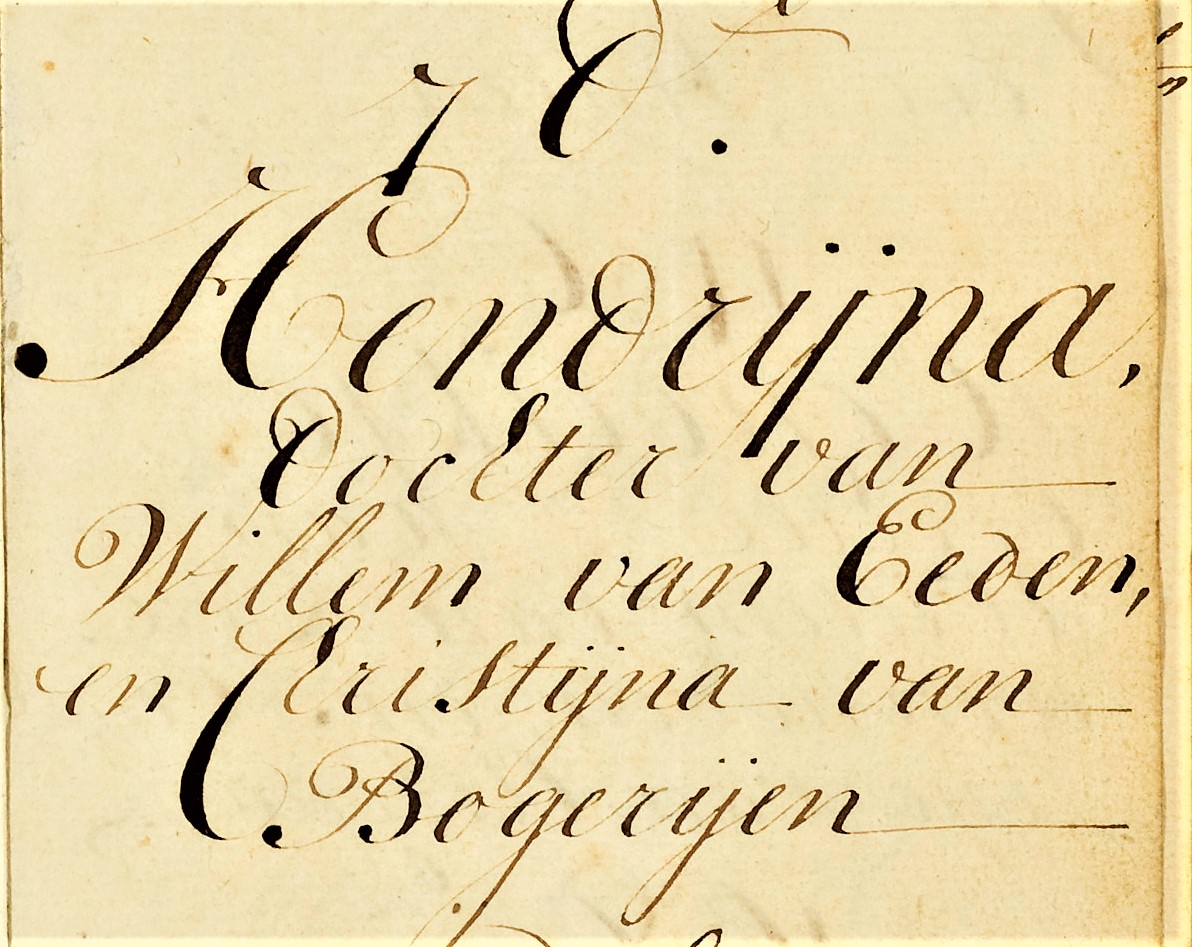 Hendrijna,
dochter van
Willem van Eeden,
en Christijna van
Bogerijen